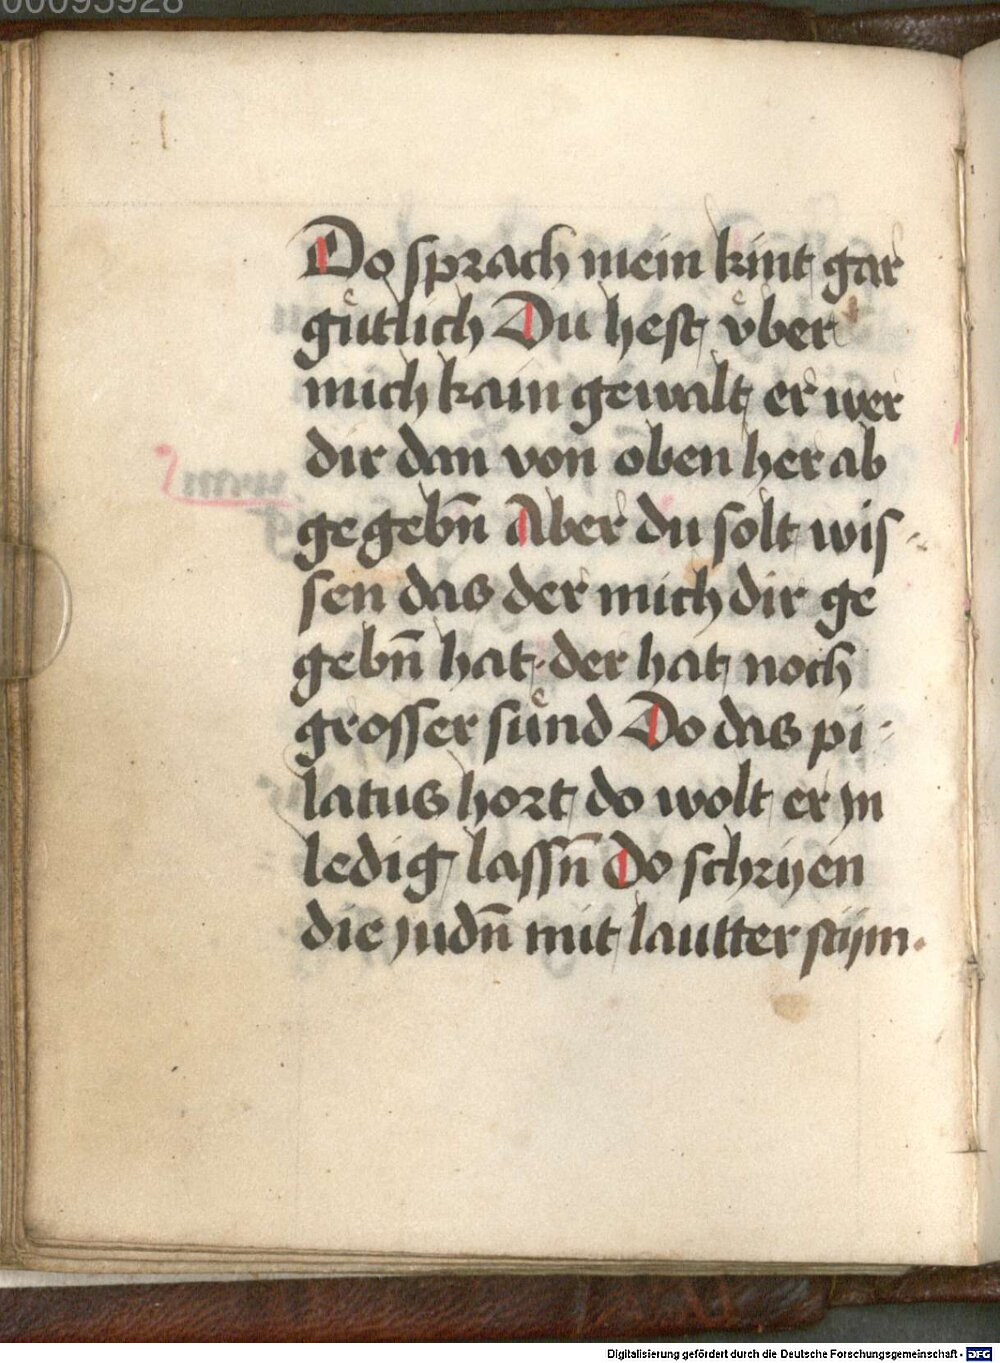 00095928
Do sprach mein kint gar
guͤtlich Du hest vͤber
mich kain gewalt er wer
dir dan von oben her ab
gegebn̄ Aber du solt wis-
sen das der mich dir ge
gebn̄ hat. der hat noch
grosser suͤnd Do das pi-
latus hort do wolt er jn
ledig lassn̄ do schryen
die judn̄ mit lautter stijm.
Digitalisierung gefördert durch die Deutsche Forschungsgemeinschaft - DFG